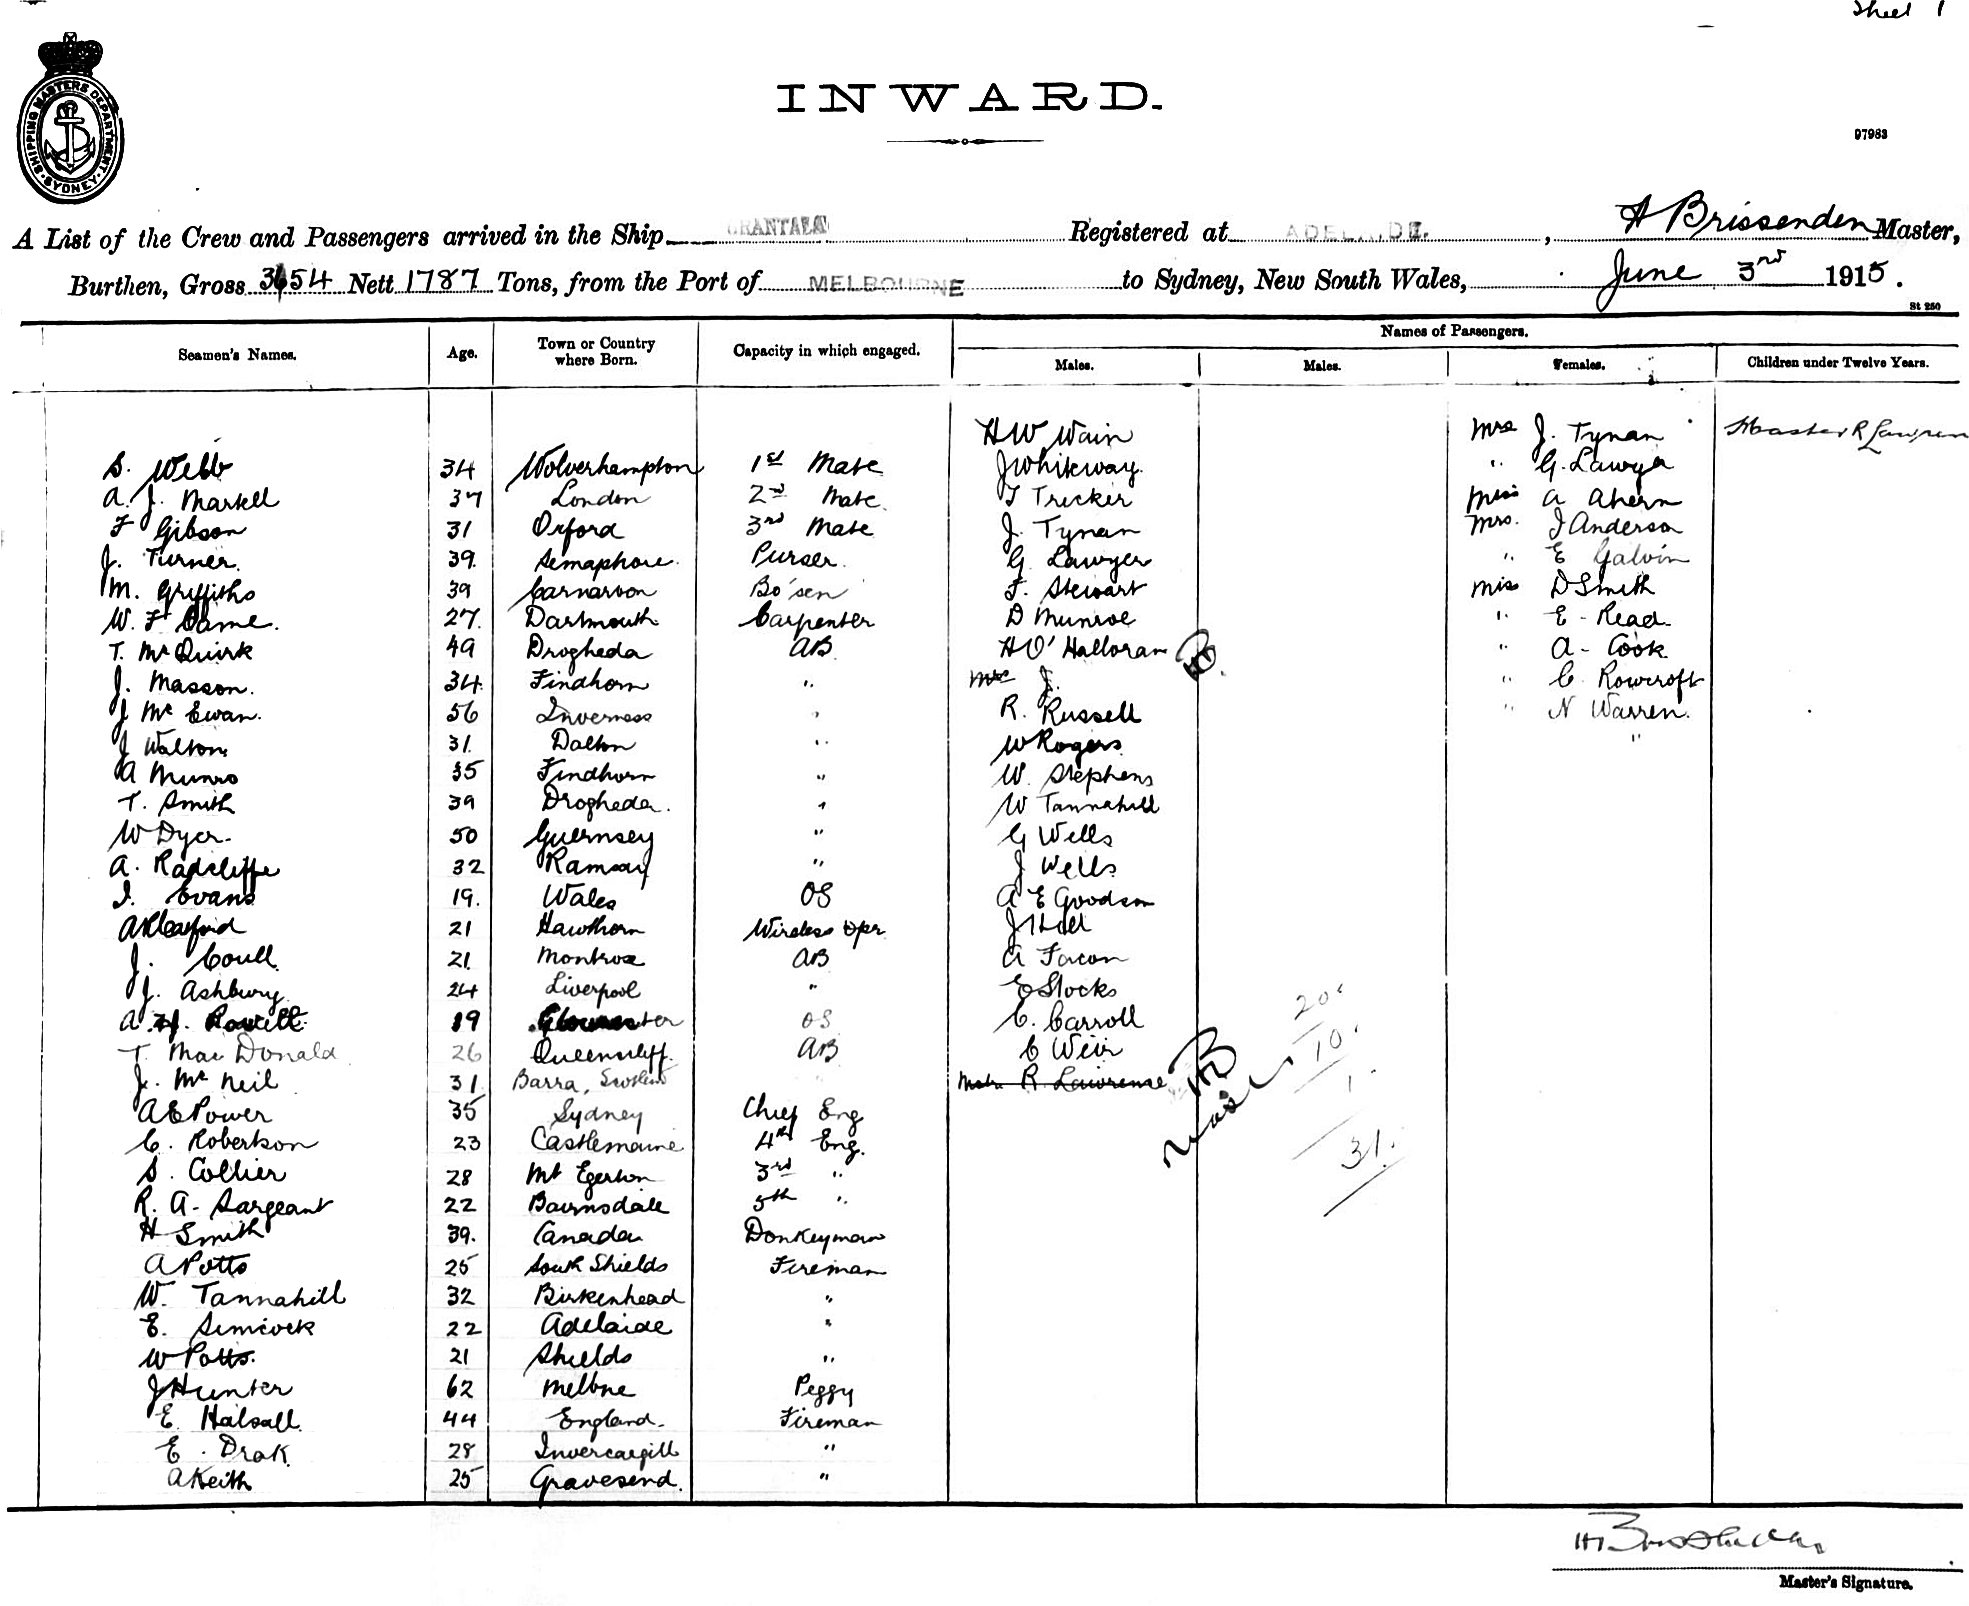 Sheet 1
SHIPPING MASTERS DEPARTMENT. SYDNEY.
INWARD.
97983
A List of the Crew and Passengers arrived in the Ship GRANTALA Registered at ADELAIDE. , H Brissenden Master,
Burthen, Gross 3654 Nett 1787 Tons, from the Port of MELBOURNE to Sydney, New South Wales, June 3rd 1915.
St 250
Seamen's Names. Age. Town or Country where Born. Capacity in which engaged. Names of Passengers.
Males. Males. Females. Children under Twelve Years.
H W Wain Mrs J. Tynan Master R Lawrence
S. Webb 34 Wolverhampton 1st Mate J Whiteway. " G. Lawyer
A. J. Markell 37 London 2nd Mate T Tricker Miss A Ahern
F Gibson 31 Oxford 3rd Mate J. Tynan Mrs. J Anderson
J. Turner. 39. Semaphore. Purser. G. Lawyer " E Galvin
M. Griffiths 39 Carnarvon Bo'sen F. Stewart Miss D Smith
W. F Dame. 27. Dartmouth Carpenter D Munroe " E. Read.
T. McQuirk 49 Drogheda AB H O'Halloran " A. Cook
J. Masson. 34. Findhorn " Mrs J. " C. Rowcroft
J McEwan. 56 Inverness " R. Russell " N Warren.
J Walton 31. Dalton " W Rogers "
A Munro 35 Findhorn " W. Stephens
T. Smith 39 Drogheda. " W Tannahill
W Dyer. 50 Guernsey " G Wells
A. Radcliffe 32 Ramsay " J Wells
I. Evans 19. Wales OS A E Goodson
21 Hawthorn Wireless Opr J Hall
J. Coull. 21. Montrose AB A Facon
J. Ashbury. 24 Liverpool " E Stocks
A. H. Rowett. 19 Gloucester OS C. Carroll 20
T. MacDonald 26 Queenscliff. AB C Weir 10
J. McNeil 31. Barra, Scotland " Mstr R. Lawrence 1
A E Power 35 Sydney Chief Eng
C. Robertson 23 Castlemaine 4th Eng. 31.
S. Collier 28 Mt Egerton 3rd "
R. A. Sargeant 22 Bairnsdale 5th "
H Smith 39. Canada Donkeyman
A Potts 25 South Shields Fireman
W. Tannahill 32 Birkenhead "
E. Simcock 22 Adelaide "
W Potts. 21 Shields "
J Hunter 62 Melbne Peggy
E. Halsall. 44 England. Fireman
E. Drak. 28 Invercargill "
A Keith 25 Gravesend. "
Master's Signature.